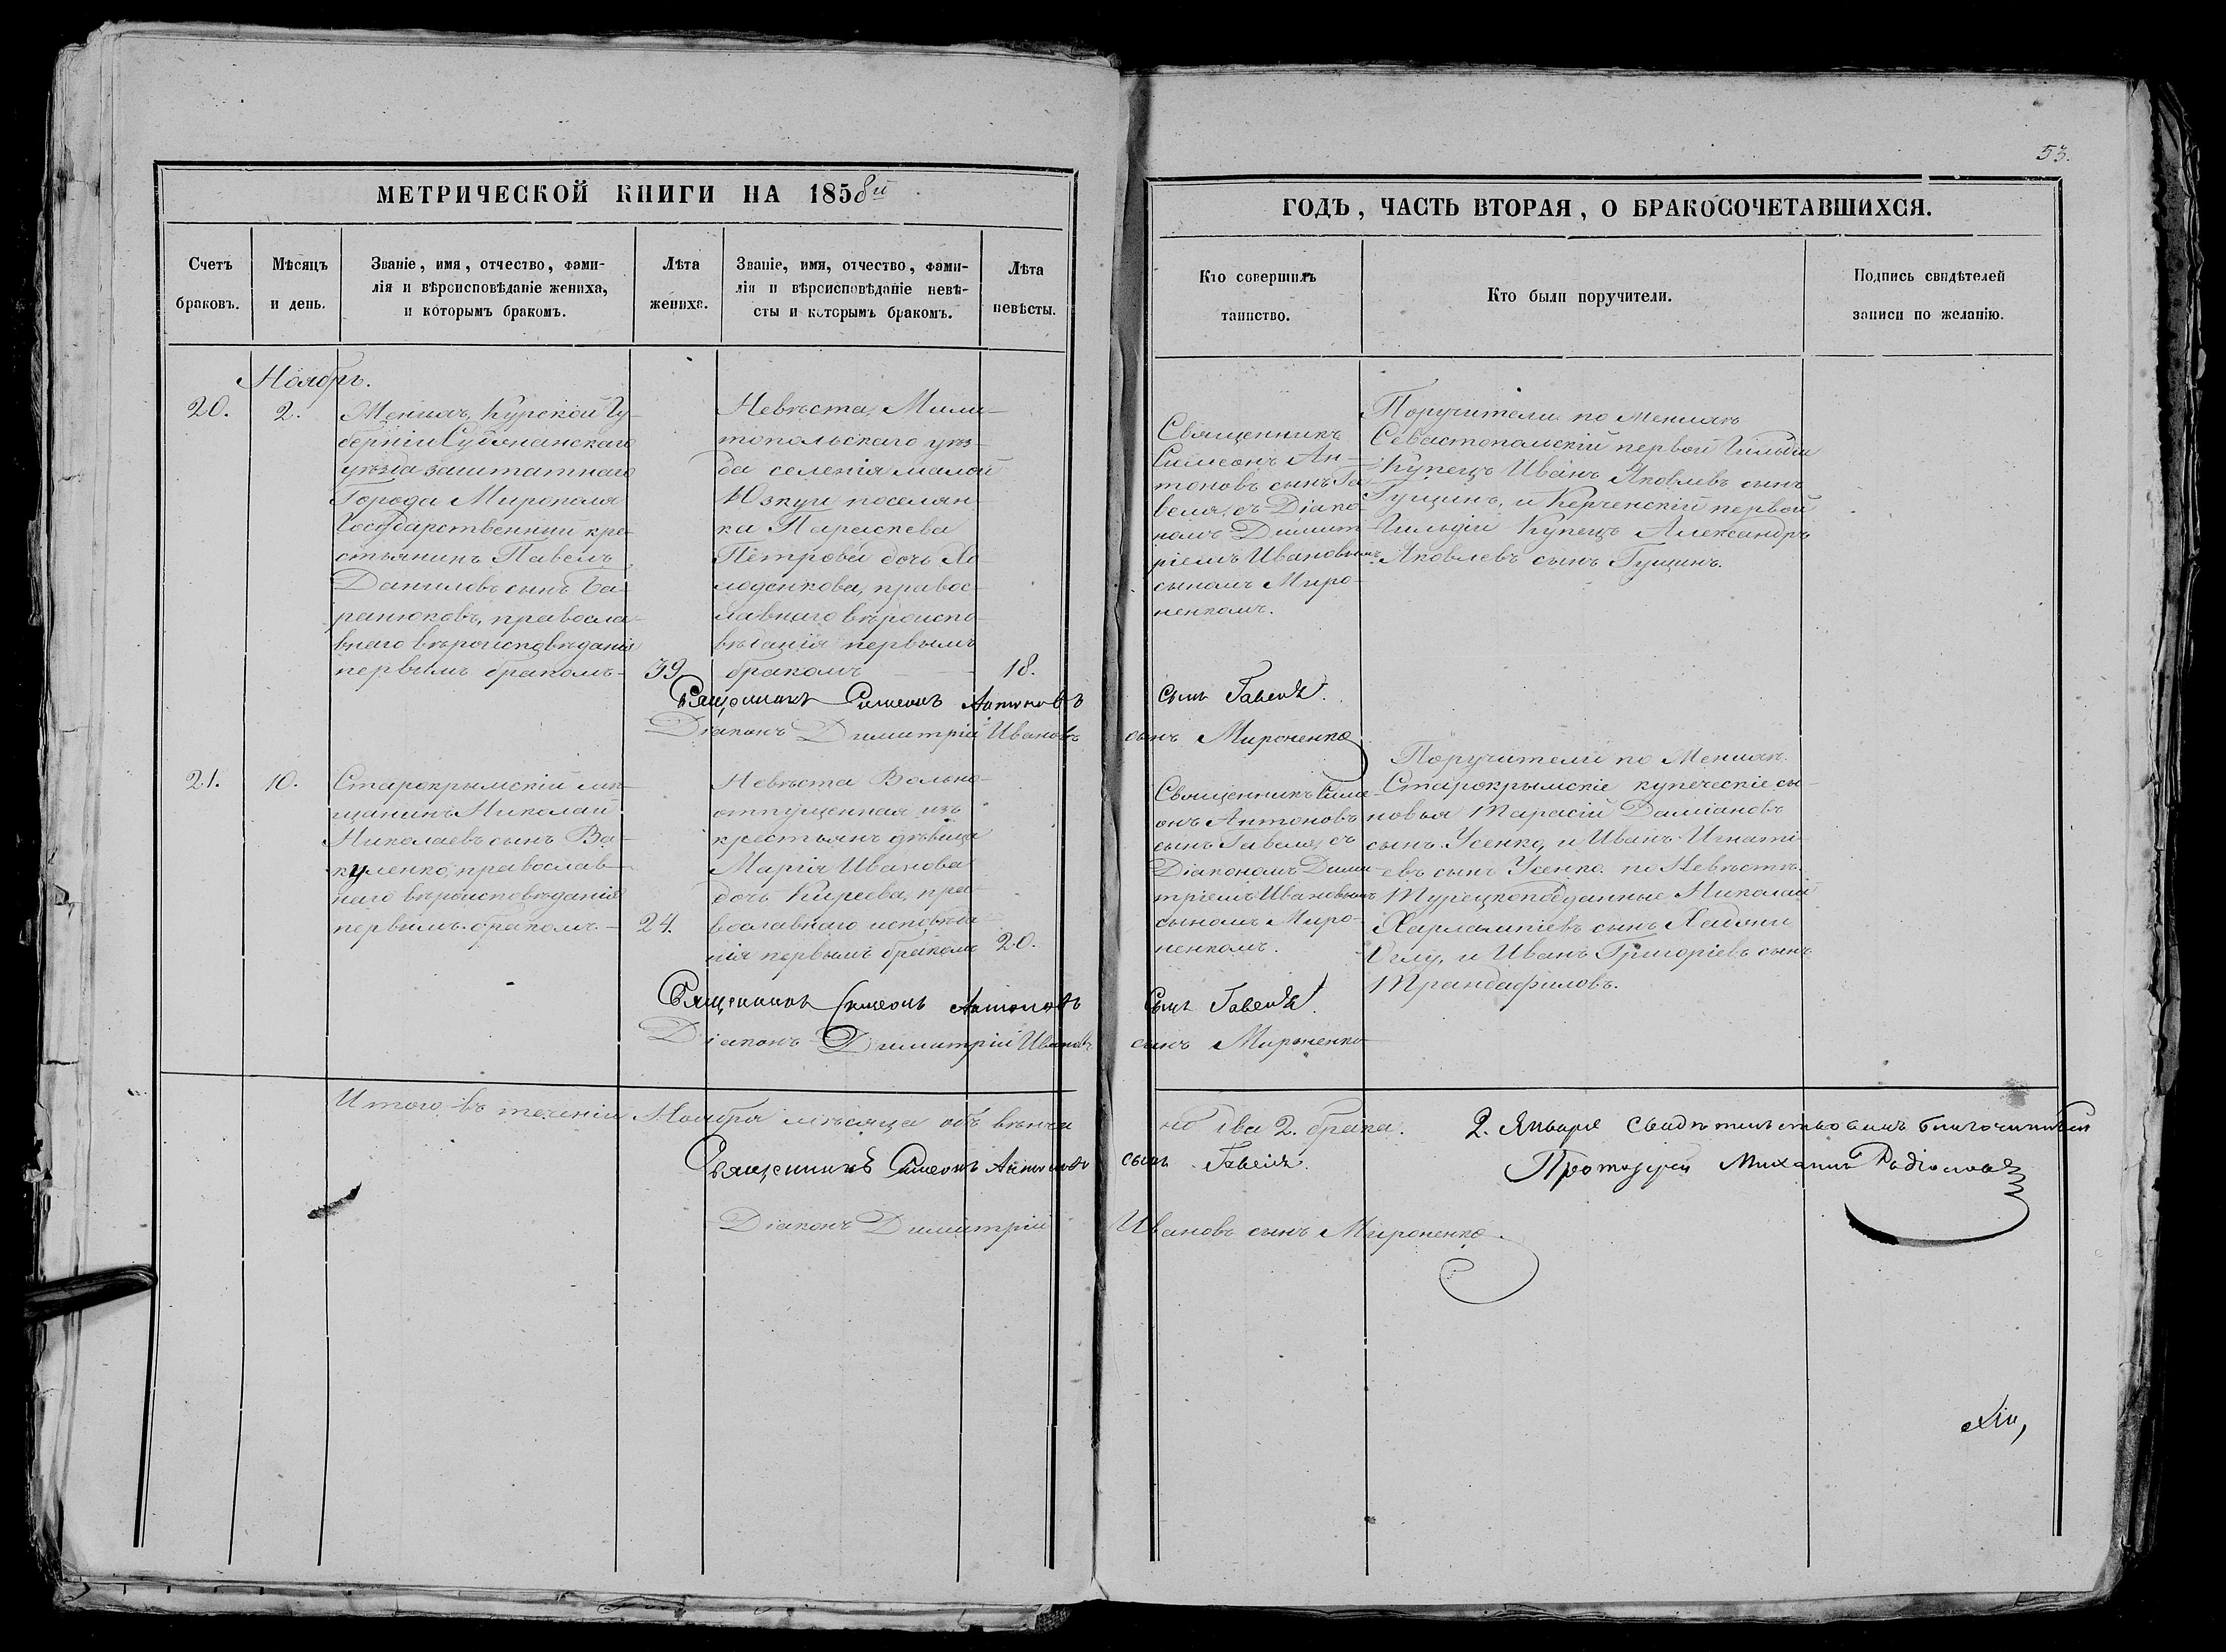 53.
МЕТРИЧЕСКОЙ КНИГИ НА 1858й
ГОДЪ, ЧАСТЬ ВТОРАЯ, О БРАКОСОЧЕТАВШИХСЯ.
Счетъ
браковъ.
Мѣсяцъ
и день.
Званіе, имя, отчество, фами-
лія и вѣроисповѣданіе жениха,
и которымъ бракомъ.
Лѣта
жениха.
Званіе, имя, отчество, фами-
лія и вѣроисповѣданіе невѣ-
сты и которымъ бракомъ.
Лѣта
невѣсты.
Кто совершилъ
таинство.
Кто были поручители.
Подпись свидѣтелей
записи по желанію.
Ноябрь.
20.
2.
Женихъ, Курской Гу-
берніи Суджанскаго
уѣзда заштатнаго
Города Мирополя
Государственный кре-
стьянинъ Павелъ
Даниловъ сынъ Ба-
ранюковъ, правосла-
внаго вѣроисповѣданія
первымъ бракомъ-
39.
Невѣста, Мили-
топольскаго уѣз-
да селенія малой
Юзкуи поселян-
ка Параскева
Петрова дочь Хо-
лоденкова, правос-
лавнаго вѣроиспо-
вѣданія первымъ
бракомъ
18.
Священникъ
Симеонъ Ан-
тоновъ сынъ Га-
веля, съ Діако-
номъ Димит-
ріемъ Ивановымъ
сыномъ Миро-
ненкомъ.
Поручители по Женихѣ
Севастопольскій первой Гильдіи
Купецъ Иванъ Яковлевъ сынъ
Гущинъ, и Керченскій первой
Гильдіи Купецъ Александръ
Яковлевъ сынъ Гущинъ.
Священникъ Симеонъ Антоновъ сынъ Гавеля.
Діаконъ Димитрій Ивановъ сынъ Мироненко
21.
10.
Старокрымскій мѣ-
щанинъ Николай
Николаевъ сынъ Ва-
куленко, православ-
наго вѣроисповѣданія
первымъ бракомъ-
24.
Невѣста Вольно-
отпущенная изъ
крестьянъ дѣвица
Марія Иванова
дочь Киреева, пра-
вославнаго исповѣда-
нія первымъ бракомъ
20.
Священникъ Симе-
онъ Антоновъ
сынъ Гавеля, съ
Діакономъ Дими-
тріемъ Ивановымъ
сыномъ Миро-
ненкомъ.
Поручители по Женихѣ.
Старокрымскіе купеческіе сы-
новья Тарасій Даміановъ
сынъ Усенко, и Иванъ Игнаті-
евъ сынъ Усенко. по Невѣстѣ.
Турецкоподданные Николай
Харлампіевъ сынъ Хаджи
Оглу, и Иванъ Григоріевъ сынъ
Трандафиловъ.
Священникъ Симеонъ Антоновъ сынъ Гавеля.
Діаконъ Димитрій Ивановъ сынъ Мироненко
Итого въ теченіи Ноября мѣсяца обвѣнча
но два 2. брака.
Священникъ Симеонъ Антоновъ сынъ Гавеля.
Діаконъ Димитрій Ивановъ сынъ Мироненко.
2. Января свидѣтельствовалъ благочинный
Протоіерей Михаилъ Родіоновъ